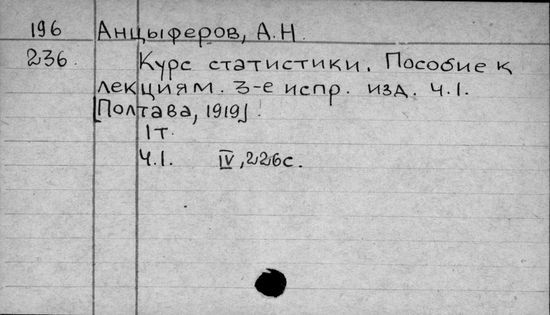 196 Анцыферов, А.Н.
236. Курс статистики. Пособие к
лекциям. 3-е испр. изд. Ч.I.
[Полтава, 1919].
1т.
Ч.I. IV, 226с.